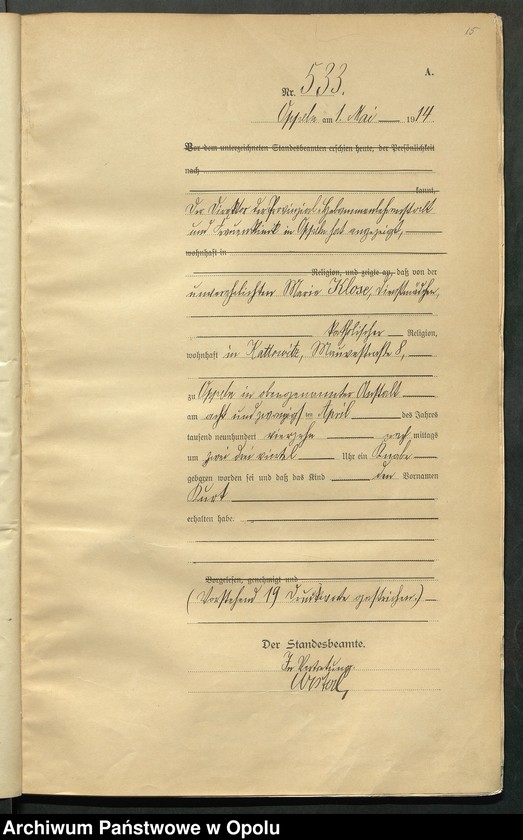 15
A.
Nr. 533.
Oppeln am 1. Mai 1914
Vor dem unterzeichneten Standesbeamten erschien heute, der Persönlichkeit
nach
kannt,
Der Direktor der Provinzial-Hebammenlehranstalt
und Frauenklinik in Oppeln hat angezeigt,
wohnhaft in
Religion, und zeigte an, daß von der
unverehelichten Marie Klose, Dienstmädchen,
katholischer Religion,
wohnhaft in Kattowitz, Mauvestraße 8,
zu Oppeln in obengenannter Anstalt
am acht und zwanzigsten April des Jahres
tausend neunhundert vierzehn nachmittags
um zwei drei viertel Uhr ein Knabe
geboren worden sei und daß das Kind den Vornamen
Kurt
erhalten habe.
Vorgelesen, genehmigt und
(Vorstehend 19 Druckworte gestrichen.)
Der Standesbeamte.
In Vertretung.
Archiwum Państwowe w Opolu